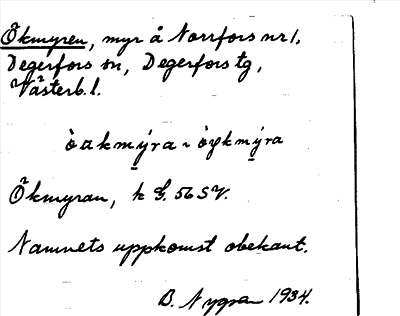 Ökmyren, myr å Norrfors nr 1,
Degerfors sn, Degerfors tg,
Västerb. l.
Ökmyran, k G. 56 S V.
Namnets uppkomst obekant.
B. Nygren 1934.